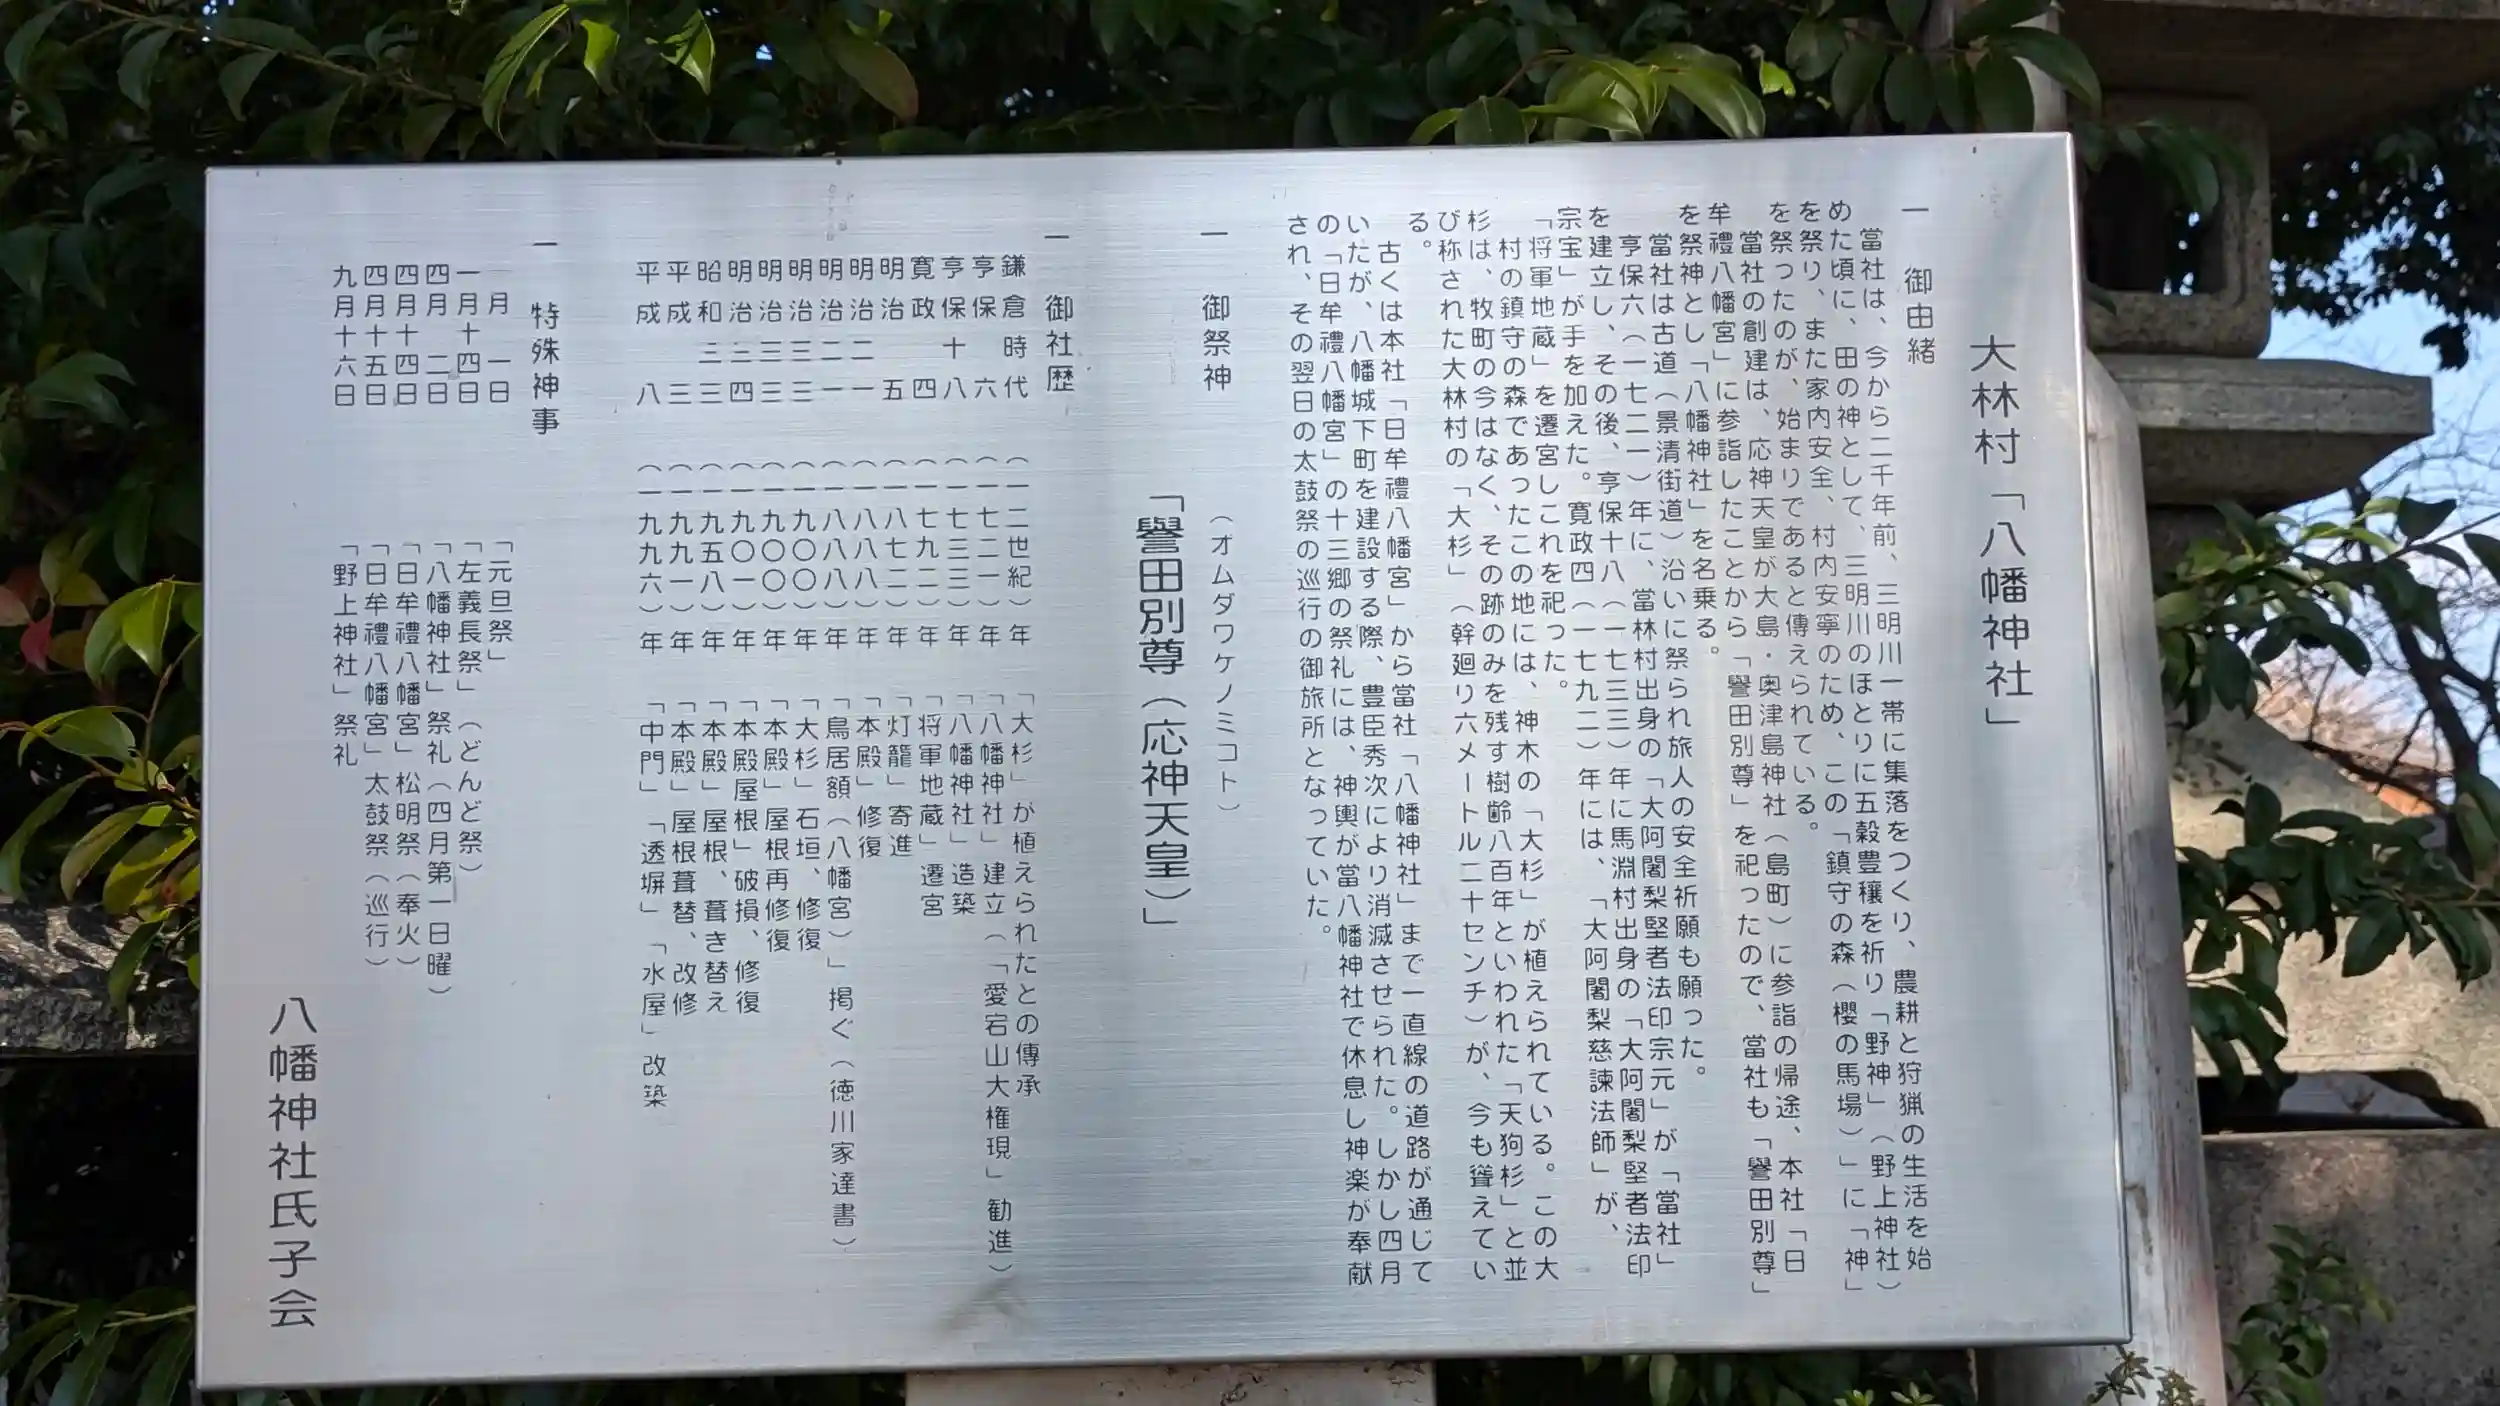 大林村「八幡神社」
一 御由緒
當社は、今から二千年前、三明川一帯に集落をつくり、農耕と狩猟の生活を始
めた頃に、田の神として、三明川のほとりに五穀豊穣を祈り「野神」(野上神社)
を祭り、また家内安全、村内安寧のため、この「鎮守の森(櫻の馬場)」に「神」
を祭ったのが、始まりであると傳えられている。
當社の創建は、応神天皇が大島・奥津島神社(島町)に参詣の帰途、本社「日
牟禮八幡宮」に参詣したことから「譽田別尊」を祀ったので、當社も「譽田別尊」
を祭神とし「八幡神社」を名乗る。
當社は古道(景清街道)沿いに祭られ旅人の安全祈願も願った。
亨保六(一七二一)年に、當林村出身の「大阿闍梨堅者法印宗元」が「當社」
を建立し、その後、亨保十八(一七三三)年に馬淵村出身の「大阿闍梨堅者法印
宗宝」が手を加えた。寛政四(一七九二)年には、「大阿闍梨慈諫法師」が、
「将軍地蔵」を遷宮しこれを祀った。
村の鎮守の森であったこの地には、神木の「大杉」が植えられている。この大
杉は、牧町の今はなく、その跡のみを残す樹齢八百年といわれた「天狗杉」と並
び称された大林村の「大杉」(幹廻り六メートル二十センチ)が、今も聳えてい
る。
古くは本社「日牟禮八幡宮」から當社「八幡神社」まで一直線の道路が通じて
いたが、八幡城下町を建設する際、豊臣秀次により消滅させられた。しかし四月
の「日牟禮八幡宮」の十三郷の祭礼には、神輿が當八幡神社で休息し神楽が奉献
され、その翌日の太鼓祭の巡行の御旅所となっていた。
一 御祭神
(オムダワケノミコト)
「譽田別尊(応神天皇)」
一 御社歴
鎌倉時代 (一二世紀)年 「大杉」が植えられたとの傳承
亨保 六 (一七二一)年 「八幡神社」建立(「愛宕山大権現」勧進)
亨保十八 (一七三三)年 「八幡神社」造築
寛政 四 (一七九二)年 「将軍地蔵」遷宮
明治 五 (一八七二)年 「灯籠」寄進
明治二一 (一八八八)年 「本殿」修復
明治二一 (一八八八)年 「鳥居額(八幡宮)」掲ぐ(徳川家達書)
明治三三 (一九〇〇)年 「大杉」石垣、修復
明治三三 (一九〇〇)年 「本殿」屋根再修復
明治三四 (一九〇一)年 「本殿屋根」破損、修復
昭和三三 (一九五八)年 「本殿」屋根、葺き替え
平成 三 (一九九一)年 「本殿」屋根葺替、改修
平成 八 (一九九六)年 「中門」「透塀」「水屋」改築
一 特殊神事
一月 一日 「元旦祭」
一月十四日 「左義長祭」(どんど祭)
四月 二日 「八幡神社」祭礼(四月第一日曜)
四月十四日 「日牟禮八幡宮」松明祭(奉火)
四月十五日 「日牟禮八幡宮」太鼓祭(巡行)
九月十六日 「野上神社」祭礼
八幡神社氏子会